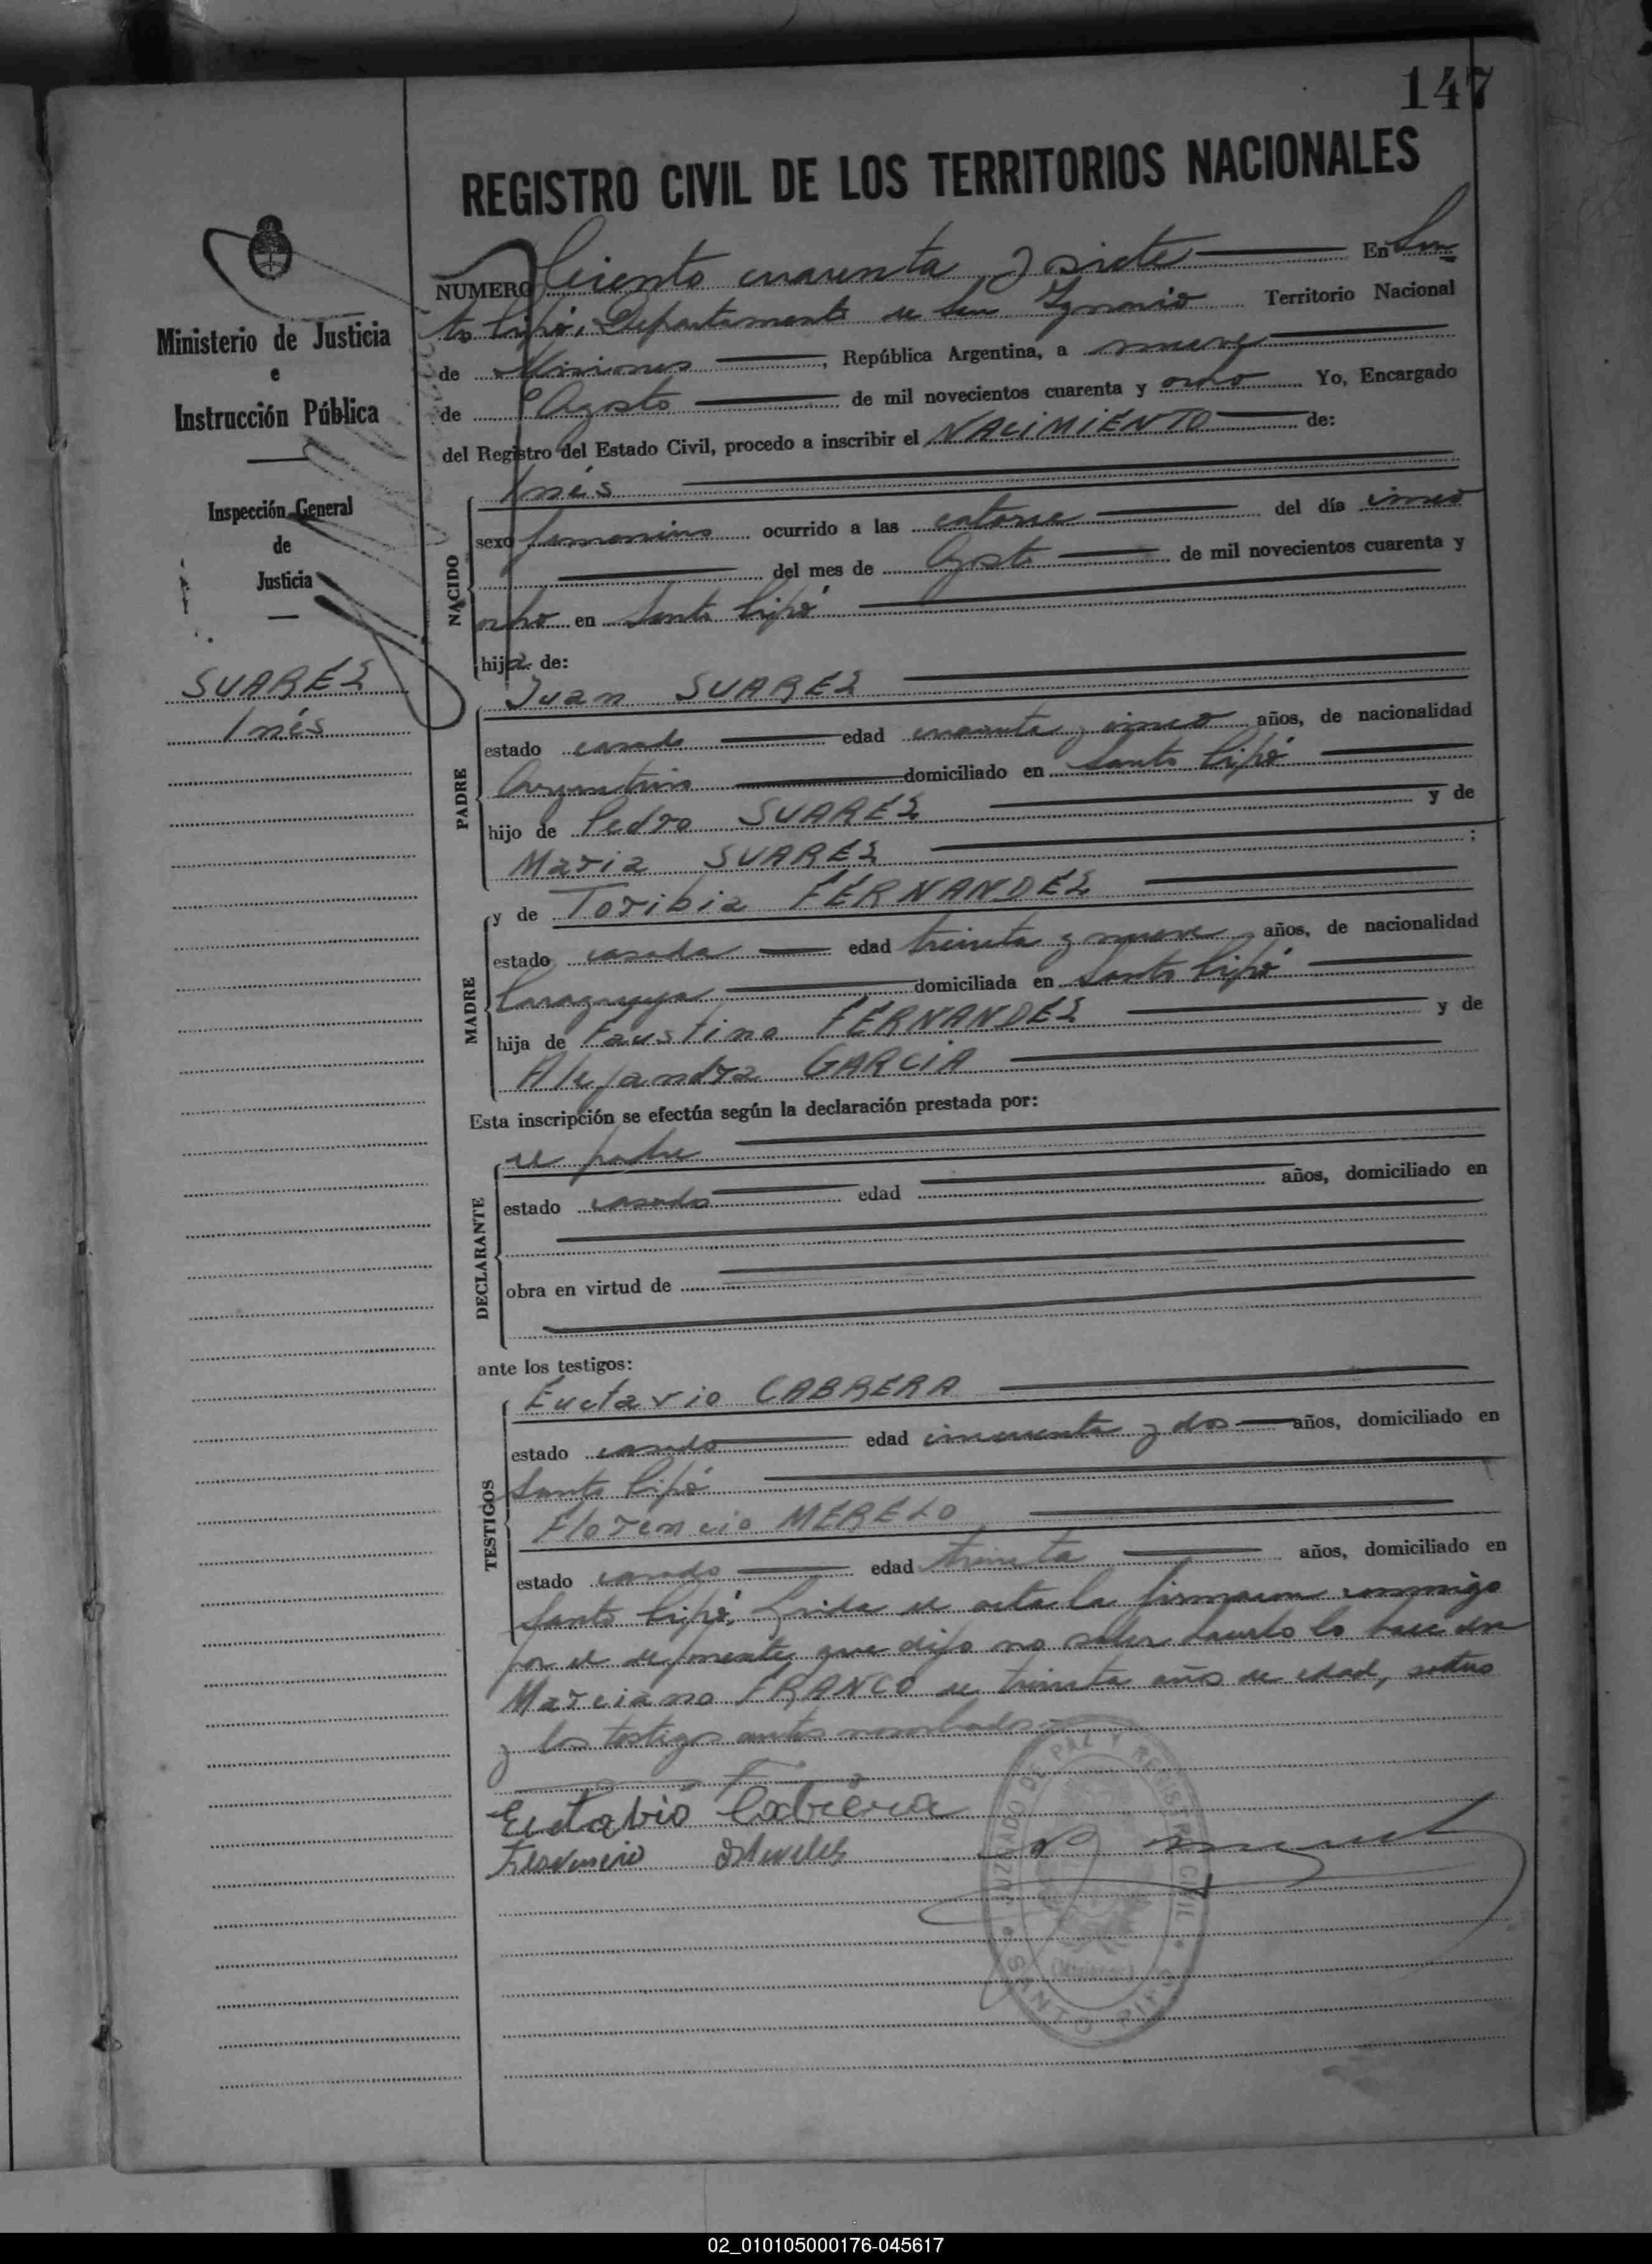 147
REGISTRO CIVIL DE LOS TERRITORIOS NACIONALES
Ministerio de Justicia
e
Instrucción Pública
Inspección General
de
Justicia
SUAREZ
Inés
NUMERO Ciento cuarenta y siete En San
to Pipó, Departamento de San Ignacio Territorio Nacional
de Misiones, República Argentina, a nueve
de Agosto de mil novecientos cuarenta y ocho Yo, Encargado
del Registro del Estado Civil, procedo a inscribir el NACIMIENTO de:
NACIDO
Inés
sexo femenino ocurrido a las catorce del día cinco
del mes de Agosto de mil novecientos cuarenta y
ocho en Santo Pipó
hija de:
PADRE
Juan SUAREZ
estado casado edad cuarenta y cinco años, de nacionalidad
Argentino domiciliado en Santo Pipó
hijo de Pedro SUAREZ y de
Maria SUAREZ ;
MADRE
y de Toribia FERNANDEZ
estado casada edad treinta y nueve años, de nacionalidad
Paraguaya domiciliada en Santo Pipó
hija de Faustino FERNANDEZ y de
Alejandra GARCIA
Esta inscripción se efectúa según la declaración prestada por:
DECLARANTE
el padre
estado casado edad años, domiciliado en
obra en virtud de
ante los testigos:
TESTIGOS
Euctavio CABRERA
estado casado edad cincuenta y dos años, domiciliado en
Santo Pipó
Florencio MERELO
estado casado edad treinta años, domiciliado en
Santo Pipó. Leída el acta la firmaron conmigo
por el deponente que dijo no saber hacerlo lo hace don
Marciano FRANCO de treinta años de edad, soltero
y los testigos antes nombrados.-
Euctabio Cabrera
Florencio
JUZGADO DE PAZ Y REGISTRO CIVIL
(Misiones)
SANTO PIPÓ
02_010105000176-045617